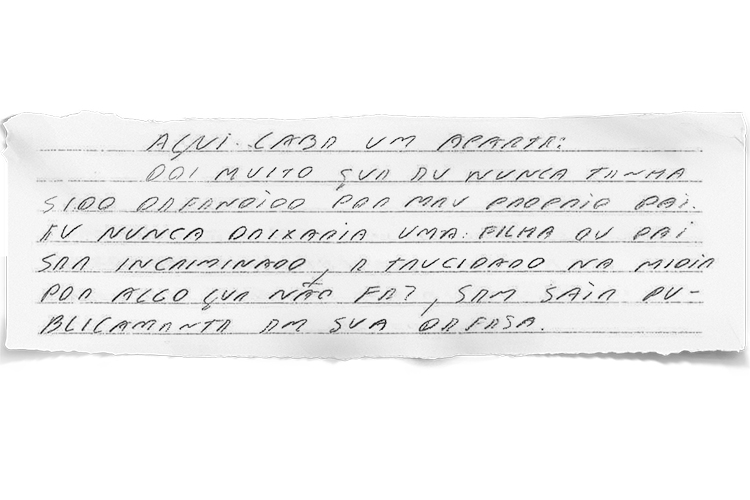 AQUI CABE UM APARTE:
DOI MUITO QUE EU NUNCA TENHA
SIDO DEFENDIDO POR MEU PROPRIO PAI.
EU NUNCA DEIXARIA UMA FILHA OU PAI
SER INCRIMINADO, E TRUCIDADO NA MIDIA
POR ALGO QUE NÃO FEZ, SEM SAIR PU-
BLICAMENTE EM SUA DEFESA.